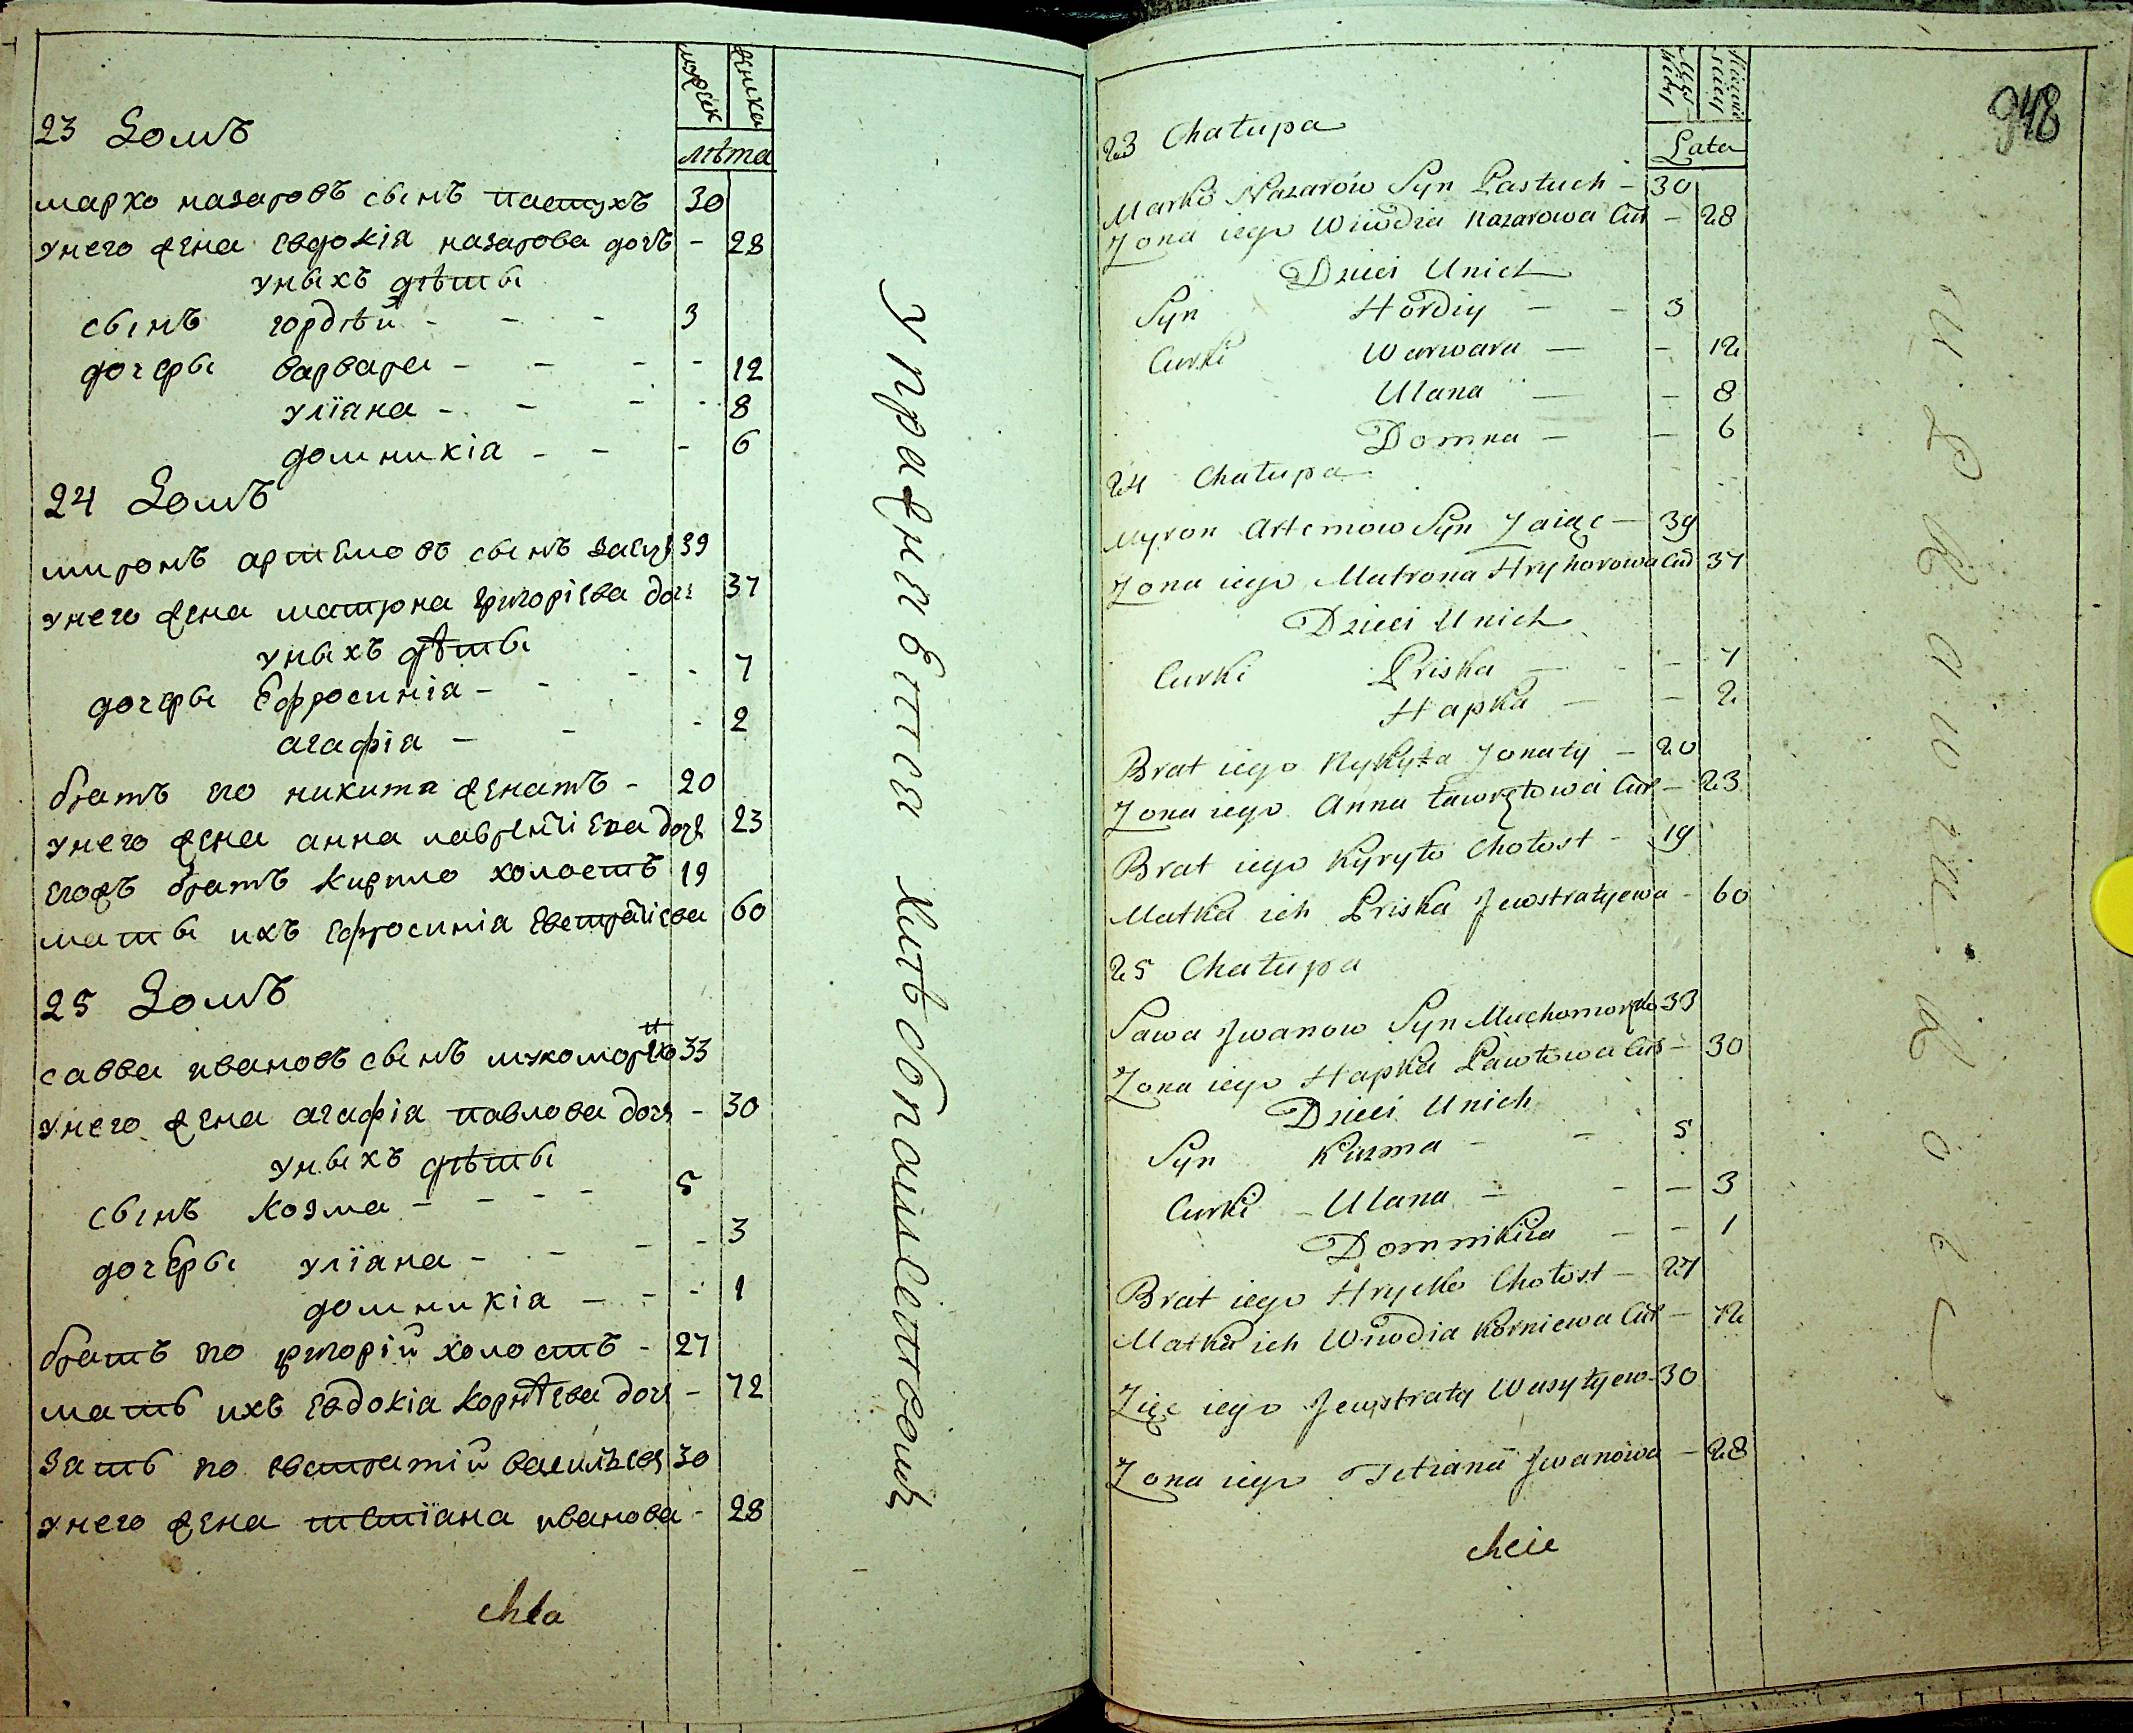 мужеск женска
лѣта
23 Домъ
марко назаровъ сынъ пастухъ 30
у него жена евдокія назарова дочь - 28
у ныхъ дѣты
сынъ гордѣй - - - 3
дочеры варвара - - - - 12
уліана - - - - 8
домникія - - - 6
24 Домъ
миронъ артемовъ сынъ заецъ 39
у него жена матрона григоріева доч 37
у ныхъ дѣты
дочеры Ефросинія - - - - 7
агафія - - - 2
братъ его никита женатъ - 20
у него жена анна лаврентіева доч 23
егожъ братъ кирило холостъ 19
маты ихъ ефросинія евстратіева 60
25 Домъ
савва ивановъ сынъ мухоморенко 33
у него жена агафія павлова доч - 30
у ныхъ дѣты
сынъ козма - - - - 5
дочеры уліана - - - - 3
домникія - - - 1
братъ его григорій холостъ - 27
мать ихъ евдокія корнѣева доч - 72
зать его евстратій васильев 30
у него жена тетіана иванова - 28
упражнявтся хлѣбопашествомъ
948
Lata
23 Chałupa
Marko Nazarów Syn Pastuch - 30
Zona iego Wiwdia Nazarowa Cur - 28
Dzieci Unich
Syn Hordiy - - 3
Curki Warwara - - 12
Ulana - - 8
Domna - - 6
24 Chałupa
Myron Artemow Syn Zaiąc - 39
Zona iego Matrona Hryhorowa Cur 37
Dzieci Unich
Curki Priska - - 7
Hapka - - 2
Brat iego Nykyta Zonaty - 20
Zona iego Anna Ławrętowa Cur - 23
Brat iego Kyryło Chołost - 19
Matka ich Priska Jewstratyewa - 60
25 Chałupa
Sawa Jwanow Syn Muchomoręko 33
Zona iego Hapka Pawłowa Cur - 30
Dzieci Unich
Syn Kuzma - - 5
Curki - Ulana - - - 3
Domnikiia - - 1
Brat iego Hryćko Chołost - 27
Matka ich Wiwdia Korniewa Cur - 72
Zięc iego Jewstraty Wasyłyew - 30
Zona iego Tetiana Jwanowa - 28